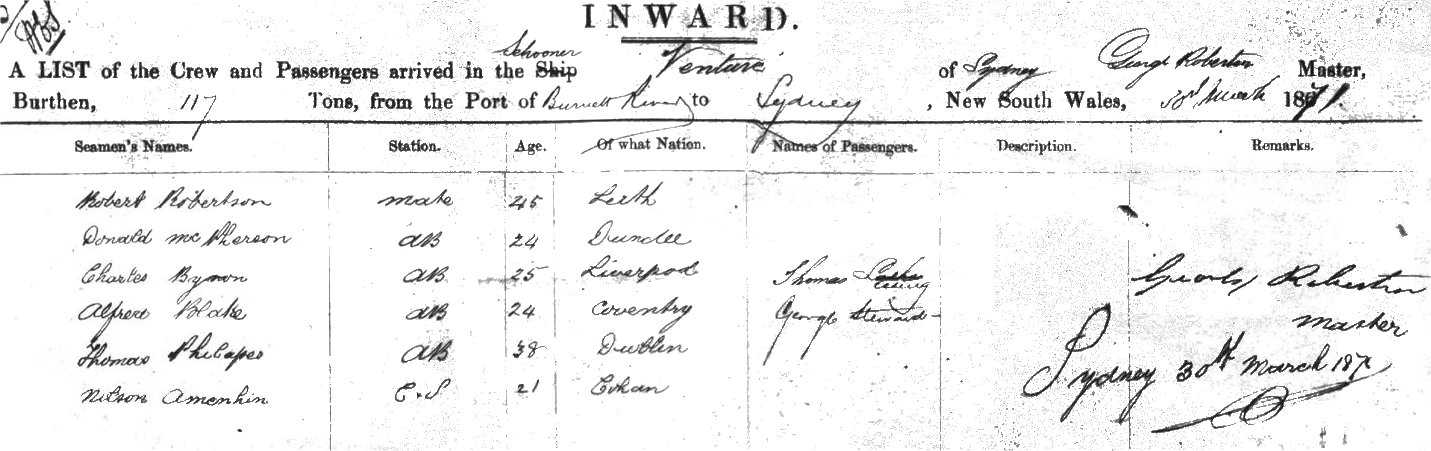 INWARD.
Schooner
A LIST of the Crew and Passengers arrived in the Ship Venture of Sydney George Robertson Master,
Burthen, 117 Tons, from the Port of Burnett River to Sydney, New South Wales, 30th March 1871.
Seamen's Names. Station. Age. Of what Nation. Names of Passengers. Description. Remarks.
Robert Robertson mate 45 Leith
Donald McPherson AB 24 Dundee
Charles Bymon AB 25 Liverpool Thomas George Robertson
Alfred Blake AB 24 Coventry George Steward
Master
Thomas AB 38 Dublin
Sydney 30th March 187
Nilson C.S 21